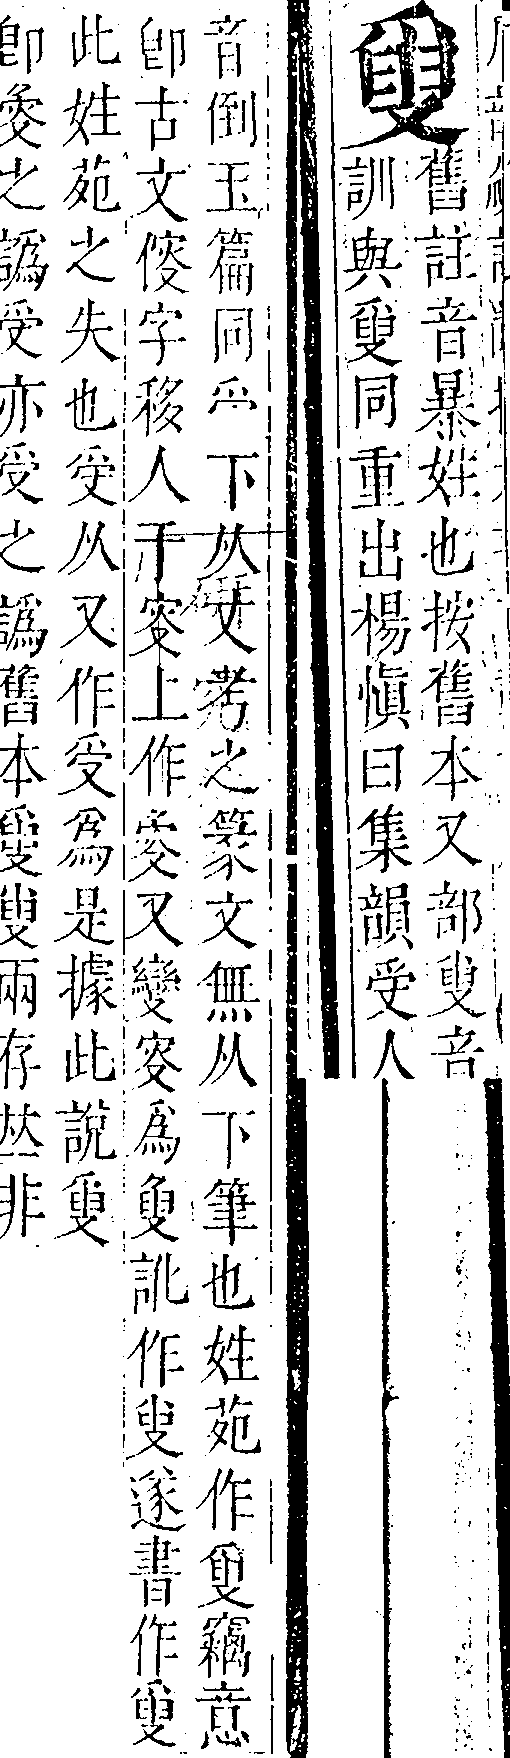 舊註音暴姓也按舊本又部叟音
訓與同重出楊愼曰集韻受人
音倒玉篇同爫下从丈考之篆文無从下筆也姓苑作竊意
卽古文傁字移人于叜上作又變叜爲訛作叟遂書作
此姓苑之失也受从又作受爲是據此說
卽之譌受亦受之譌舊本叟兩存𠀤非